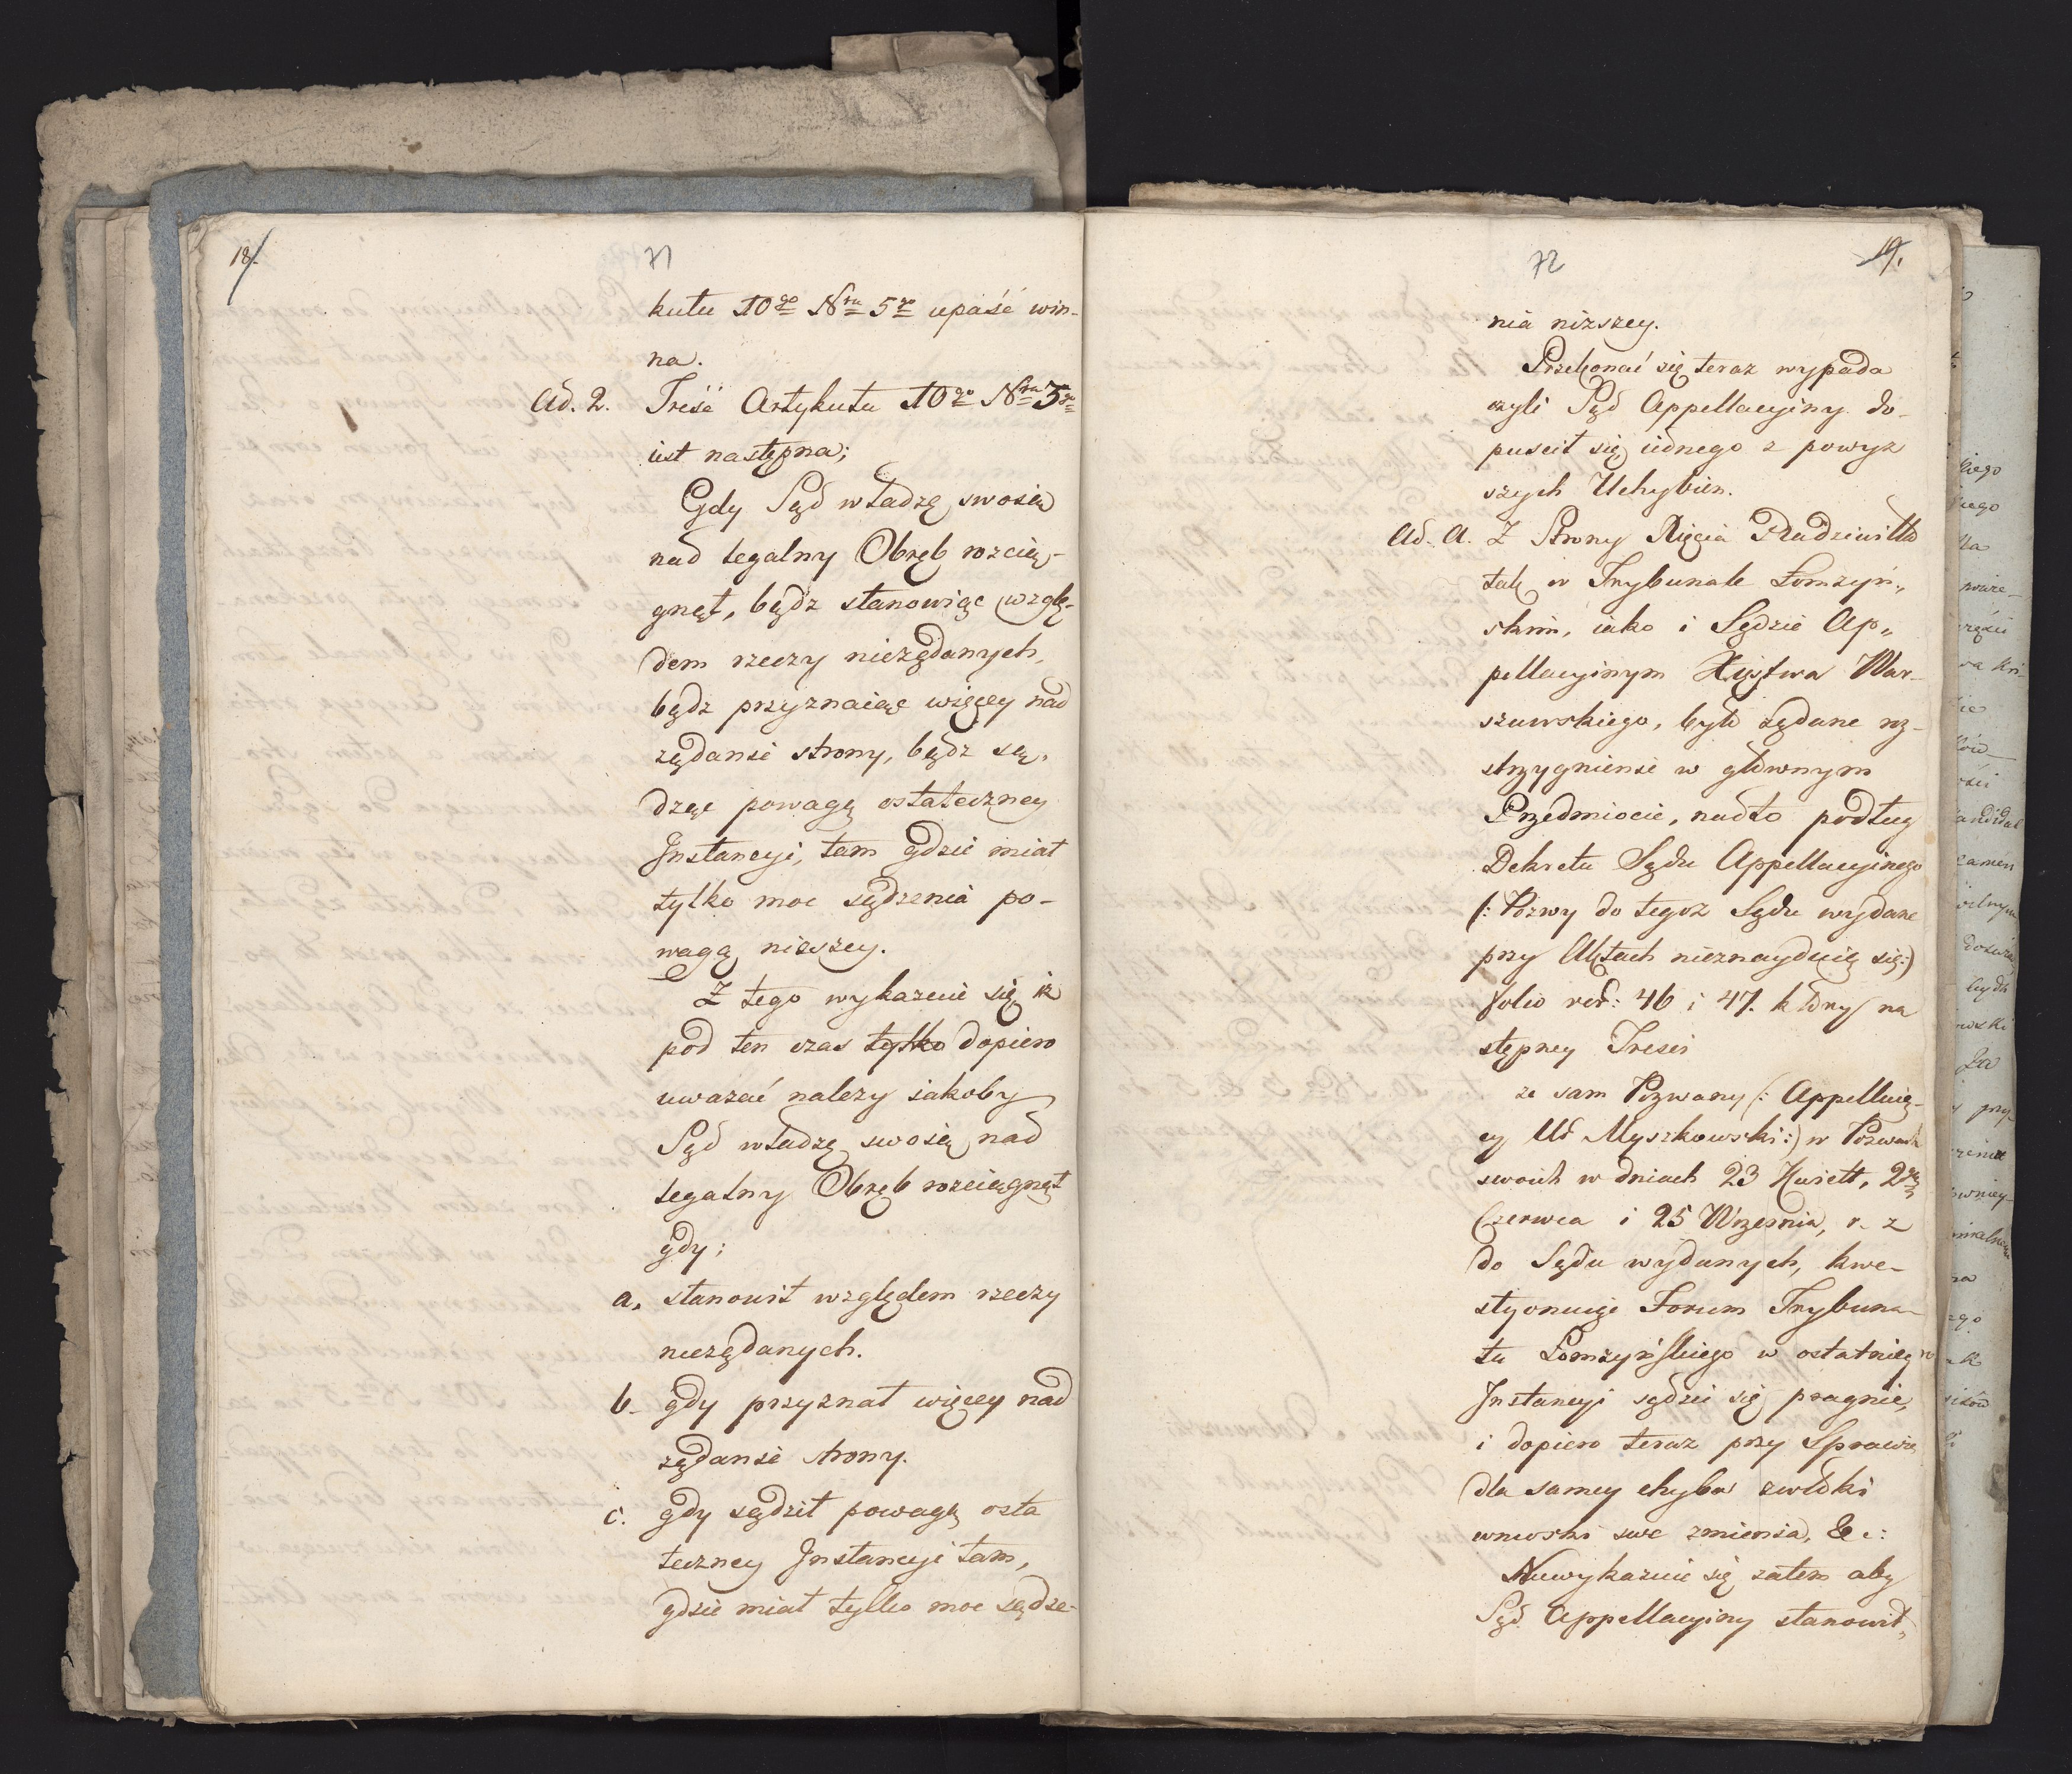 18.
71
kułu 10go Nru 5go upaść win-
na.
Ad. 2. Treść Artykułu 10go Nru 5go
iest następna;
Gdy Sąd władzę swoią
nad legalny Obręb rozcią-
gnął, bądz stanowiąc wzglę-
dem rzeczy nieżądanych,
bądz przyznaiąc więcey nad
żądanie strony, bądz są-
dząc powagą ostateczney
Instancyi, tam gdzie miał
tylko moc sądzenia po-
wagą niższey.
Z tego wykazuie się iż
pod ten czas tylko dopiero
uważać należy iakoby
Sąd władzę swoią nad
legalny Obręb rozciągnął
gdy;
a. stanowił względem rzeczy
nieżądanych.
b. gdy przyznał więcey nad
żądanie strony.
c. gdy sądził powagą osta
teczney Instancyi tam,
gdzie miał tylko moc sądze-
72
19.
nia niższey.
Przekonać się teraz wypada
czyli Sąd Appellacyiny do-
puscił się iednego z powyż
szych Uchybien.
Ad. A. Z Strony Xięcia Radziwiłła
tak w Trybunale Łomżyń„
skim, iako i Sądzie Ap„
pellacyinym Xięstwa War-
szawskiego, było żądane roz-
strzygnienie w głównym
Przedmiocie, nadto podług
Dekretu Sądu Appellacyinego
(: Pozwy do tegoż Sądu wydane
przy Aktach nieznayduią się:)
folio red: 46 i 47. który na
stępney Treści
że sam Pozwany (: Appelluią-
cy Ur Myszkowski:) w Pozwach
swoich w dniach 23 Kwiett, 2go
Czerwca i 25 Września, r. z
do Sądu wydanych, kwe-
styonuiąc Forum Trybuna-
łu Łomżyńskiego w ostatniey
Instancyi sądzić się pragnie,
i dopiero teraz przy Sprawie
dla samey chyba zwłoki
wnioski swe zmienia, &c:
Niewykazuie się zatem aby
Sąd Appellacyiny stanowił„